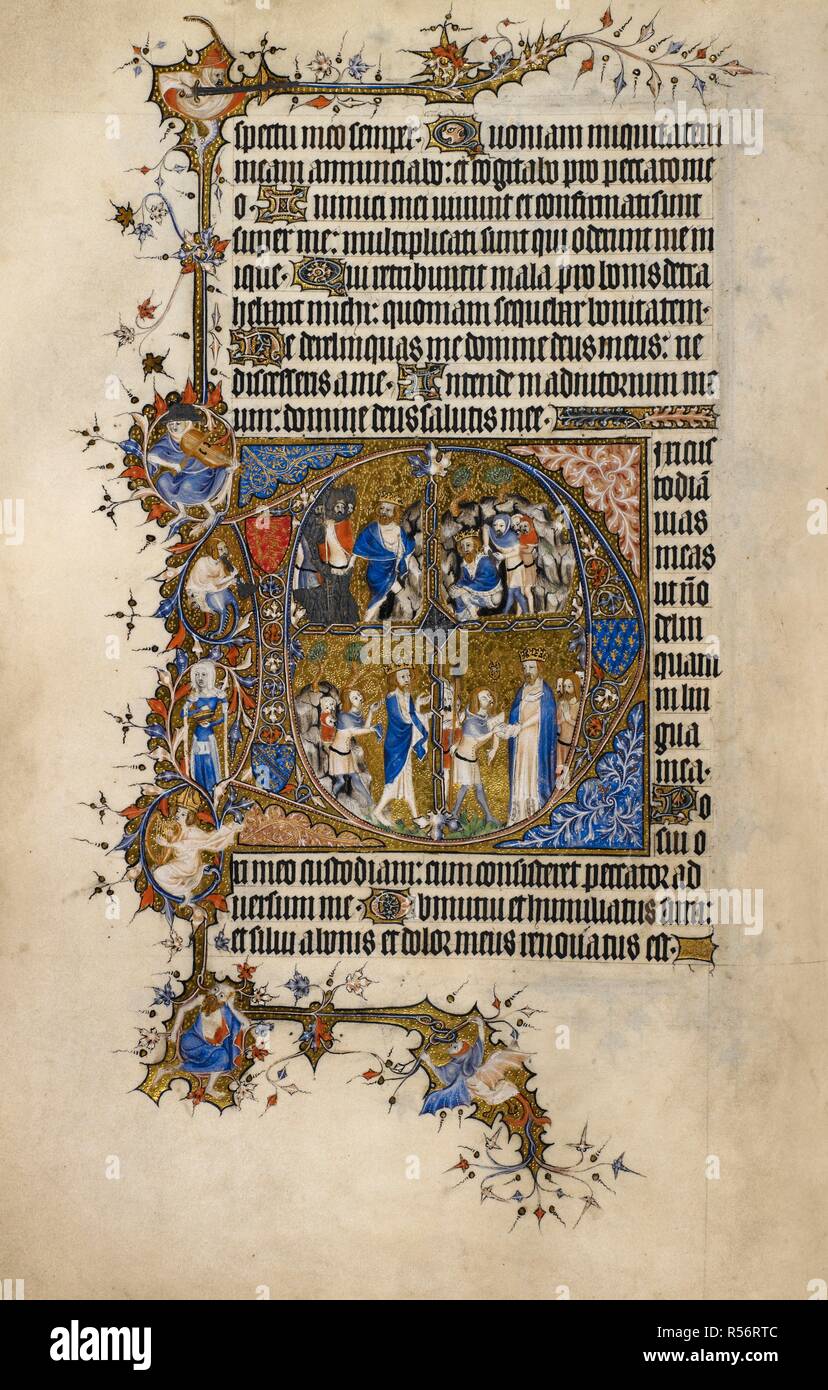 spectu meo semper. Quoniam iniquitatem
meam annunciabo: et cogitabo pro peccato me
o. Inimici mei vivunt et confirmati sunt
super me: multiplicati sunt qui oderunt me in
ique. Qui retribuunt mala pro bonis detra
hebant michi: quoniam sequebar bonitatem.
Ne derelinquas me domine deus meus: ne
discesseris a me. Intende in adiutorium me
um: domine deus salutis mee.
Dixi cus
todiã
uias
meas
ut nõ
delin
quam
in lin
gua
mea.
Po
sui o
ri meo custodiam: cum consisteret peccator ad
versum me. Obmutui et humiliatus sum:
et silui a bonis et dolor meus renovatus est.
alamy
alamy
Image ID: R56RTC
www.alamy.com